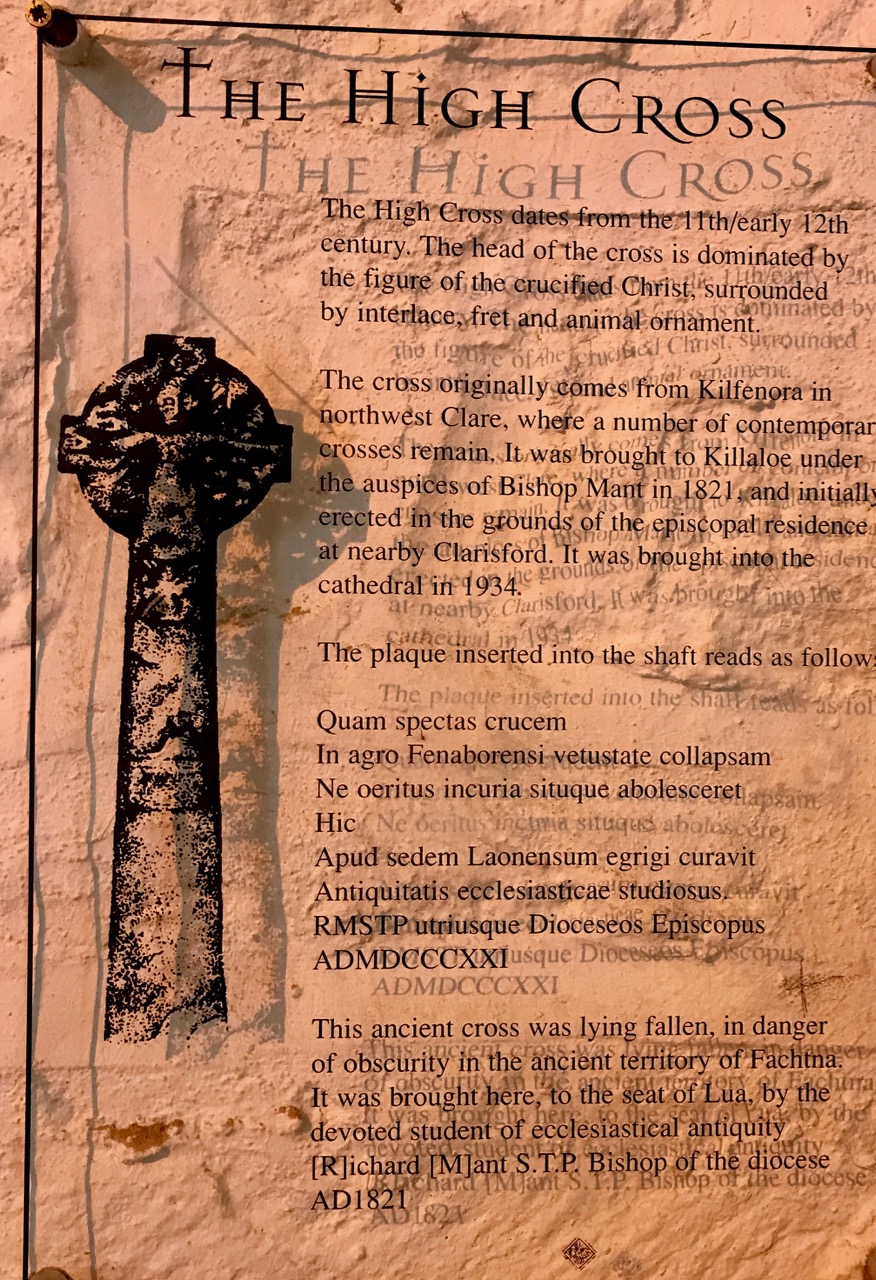 The High Cross
The High Cross dates from the 11th/early 12th
century. The head of the cross is dominated by
the figure of the crucified Christ, surrounded
by interlace, fret and animal ornament.
The cross originally comes from Kilfenora in
northwest Clare, where a number of contemporar
crosses remain. It was brought to Killaloe under
the auspices of Bishop Mant in 1821, and initially
erected in the grounds of the episcopal residence
at nearby Clarisford. It was brought into the
cathedral in 1934.
The plaque inserted into the shaft reads as follows
Quam spectas crucem
In agro Fenaborensi vetustate collapsam
Ne oeritus incuria situque abolesceret
Hic
Apud sedem Laonensum egrigi curavit
Antiquitatis ecclesiasticae studiosus.
RMSTP utriusque Dioceseos Episcopus
ADMDCCCXXI
This ancient cross was lying fallen, in danger
of obscurity in the ancient territory of Fachtna.
It was brought here, to the seat of Lua, by the
devoted student of ecclesiastical antiquity
[R]ichard [M]ant S.T.P. Bishop of the diocese
AD1821